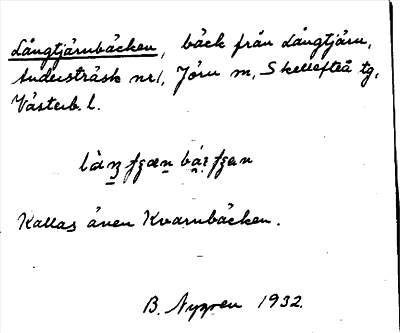 Långtjärnbäcken, bäck från Långtjärn,
Andersträsk nr 1, Jörn sn, Skellefteå tg,
Västerb. l.
Kallas även Kvarnbäcken.
B. Nygren 1932.